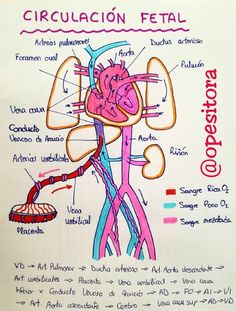 CIRCULACIÓN FETAL
Arterias pulmonares
Ductus arterioso
Foramen oval
Pulmón
Vena cava
Aorta
Conducto
Venoso de Arancio
Aorta
Arterias umbilicales
Riñón
Vena
umbilical
Placenta
Sangre Rica O₂
Sangre Poco O₂
Sangre mezclada
@opesitora
VD → Art. Pulmonar → Ductus arterioso → Art Aorta descendente →
Art. umbilicales → Placenta → Vena umbilical → Vena cava
Inferior x Conducto Venoso de Arancio → AD → FO → AI → VI
→ Art. Aorta ascendente → Cerebro → Vena cava sup → AD → VD